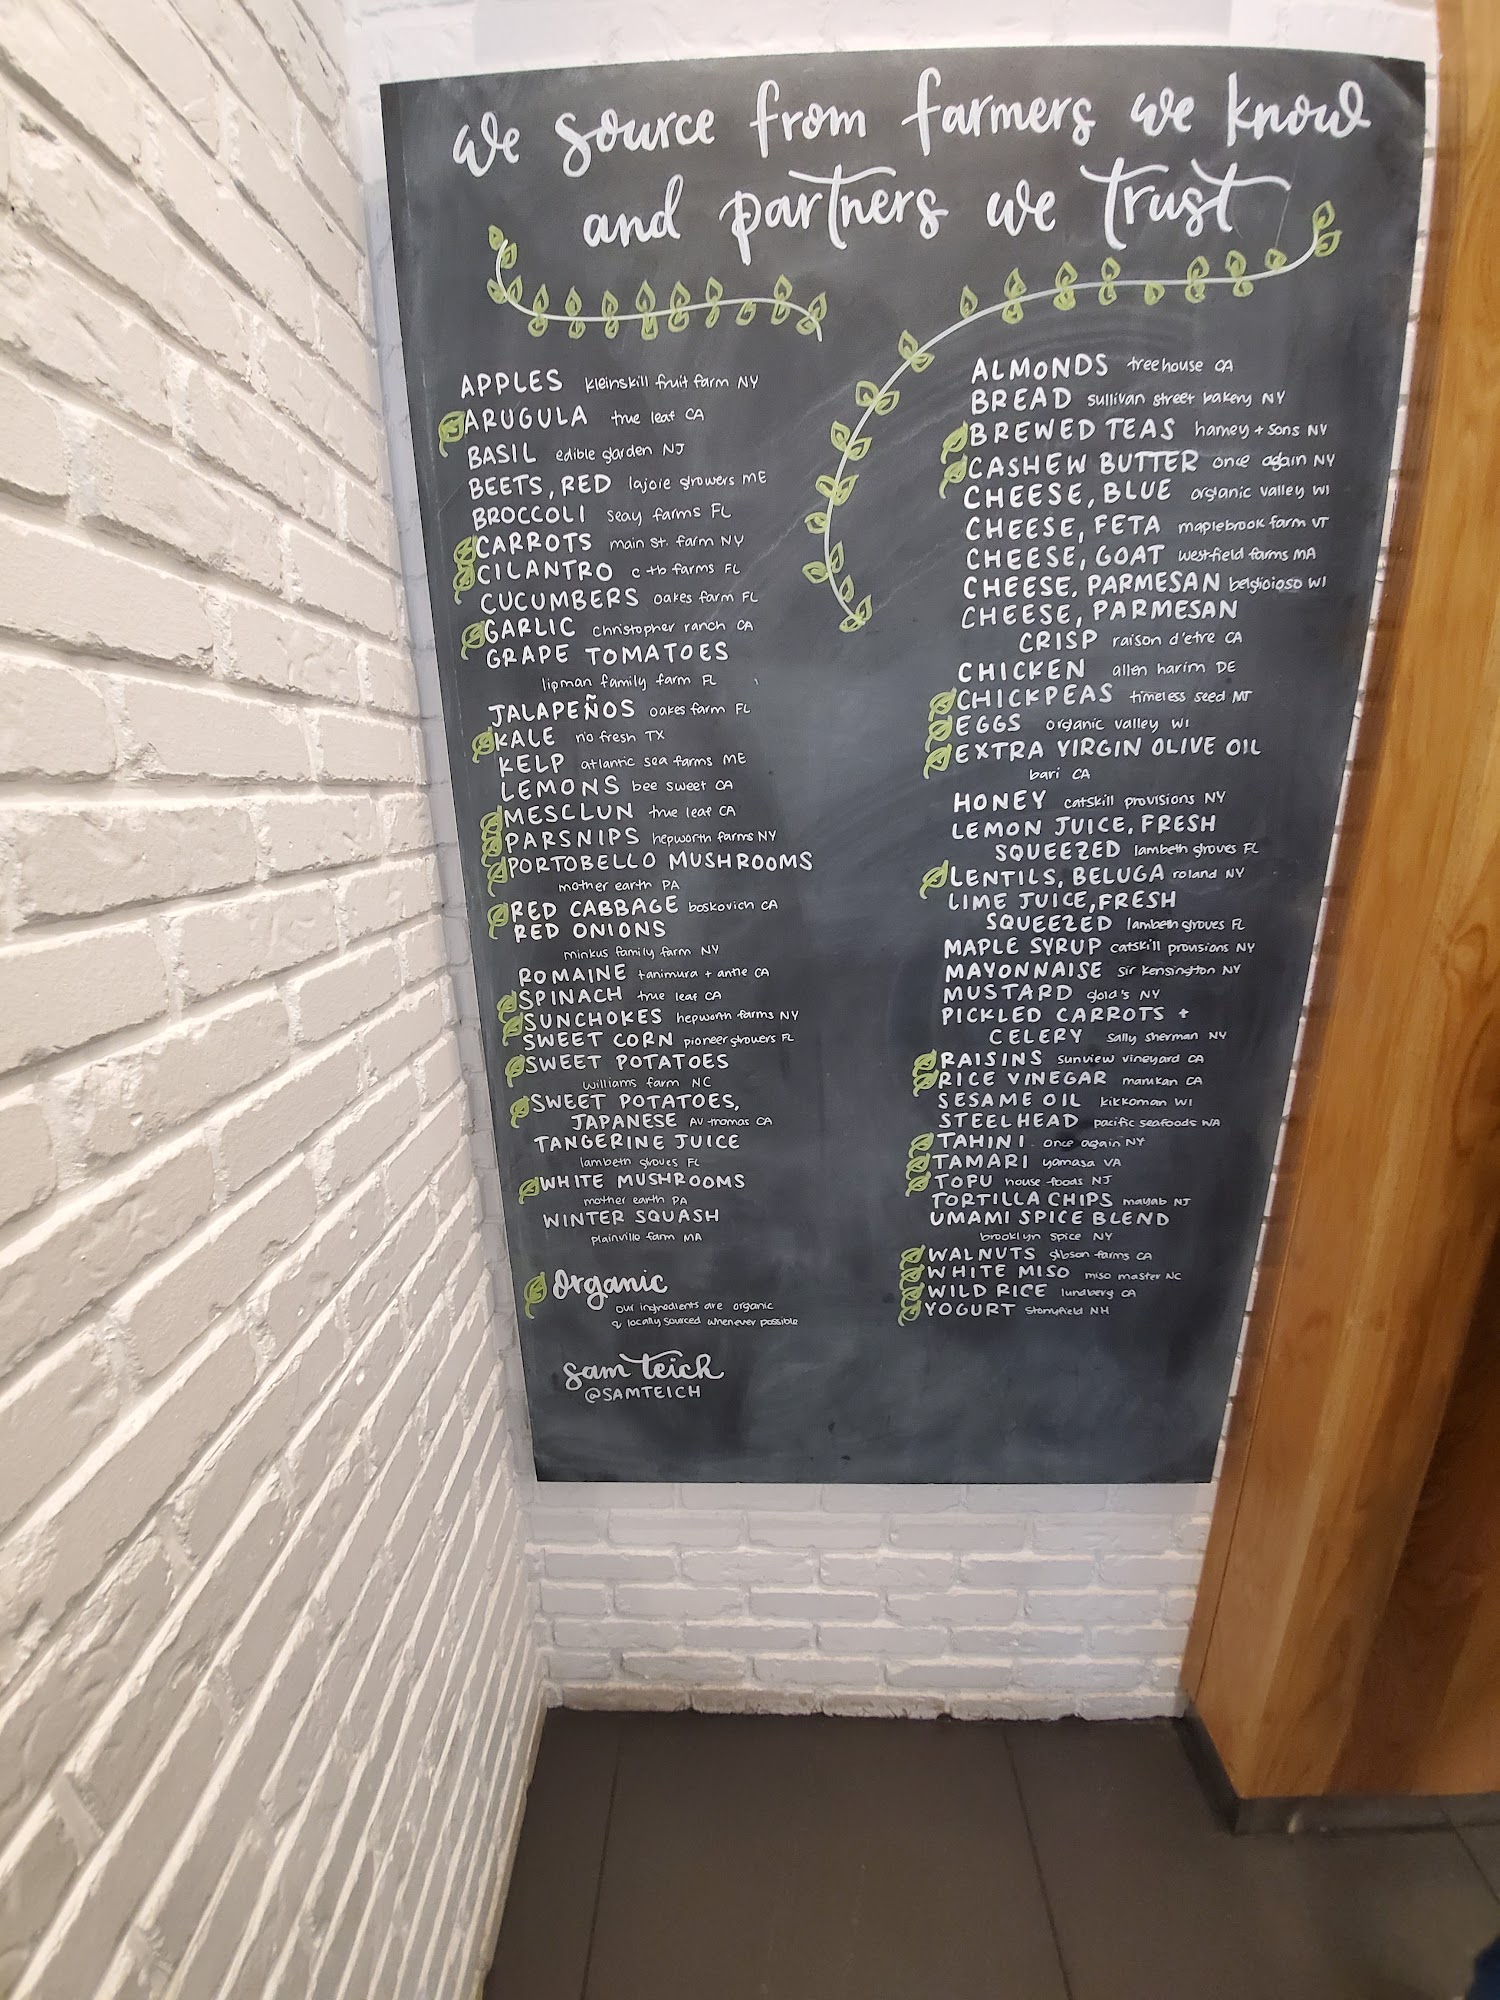 we source from farmers we know
and partners we trust
APPLES kleinskill fruit farm NY
ARUGULA true leaf CA
BASIL edible garden NJ
BEETS, RED lajoie growers ME
BROCCOLI seay farms FL
CARROTS main st. farm NY
CILANTRO c+b farms FL
CUCUMBERS oakes farm FL
GARLIC christopher ranch CA
GRAPE TOMATOES
lipman family farm FL
JALAPEÑOS oakes farm FL
KALE no fresh TX
KELP atlantic sea farms ME
LEMONS bee sweet CA
MESCLUN true leaf CA
PARSNIPS hepworth farms NY
PORTOBELLO MUSHROOMS
mother earth PA
RED CABBAGE boskovich CA
RED ONIONS
minkus family farm NY
ROMAINE tanimura + antle CA
SPINACH true leaf CA
SUNCHOKES hepworth farms NY
SWEET CORN pioneer growers FL
SWEET POTATOES
williams farm NC
SWEET POTATOES,
JAPANESE AV thomas CA
TANGERINE JUICE
lambeth groves FL
WHITE MUSHROOMS
mother earth PA
WINTER SQUASH
plainville farm MA
Organic
our ingredients are organic
& locally sourced whenever possible
sam teich
@SAMTEICH
ALMONDS treehouse CA
BREAD sullivan street bakery NY
BREWED TEAS harney + sons NY
CASHEW BUTTER once again NY
CHEESE, BLUE organic valley WI
CHEESE, FETA maplebrook farm VT
CHEESE, GOAT westfield farms MA
CHEESE, PARMESAN belgioioso WI
CHEESE, PARMESAN
CRISP raison d'etre CA
CHICKEN allen harim DE
CHICKPEAS timeless seed MT
EGGS organic valley WI
EXTRA VIRGIN OLIVE OIL
bari CA
HONEY catskill provisions NY
LEMON JUICE, FRESH
SQUEEZED lambeth groves FL
LENTILS, BELUGA roland NY
LIME JUICE, FRESH
SQUEEZED lambeth groves FL
MAPLE SYRUP catskill provisions NY
MAYONNAISE sir kensington NY
MUSTARD gold's NY
PICKLED CARROTS +
CELERY sally sherman NY
RAISINS sunview vineyard CA
RICE VINEGAR marukan CA
SESAME OIL kikkoman WI
STEELHEAD pacific seafoods WA
TAHINI once again NY
TAMARI yamasa VA
TOFU house foods NJ
TORTILLA CHIPS mayab NJ
UMAMI SPICE BLEND
brooklyn spice NY
WALNUTS gibson farms CA
WHITE MISO miso master NC
WILD RICE lundberg CA
YOGURT stonyfield NH